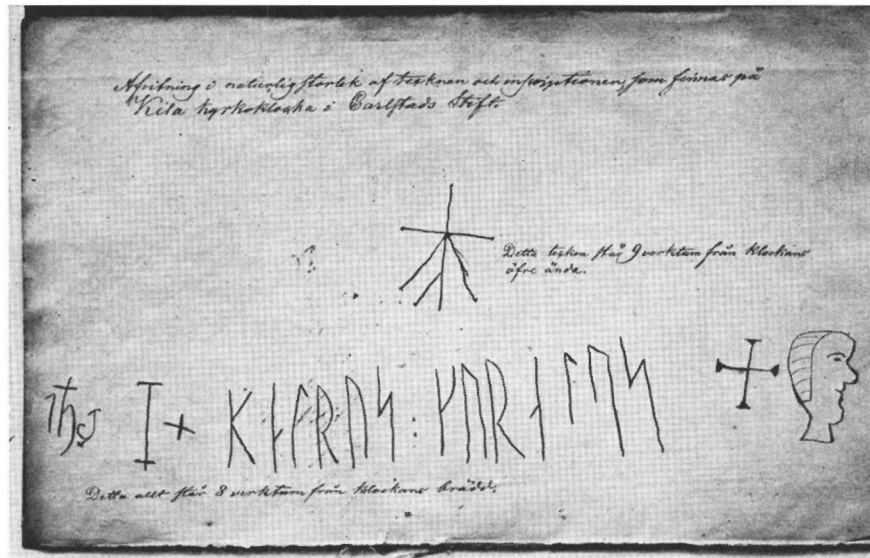 Afritning i naturlig storlek af tecknen och inscriptionen, som finnas på
Kila kyrkoklocka i Carlstads Stift.
Detta tecken står 9 verktum från klockans
öfre ända.
Detta allt står 8 verktum från klockans brädd.